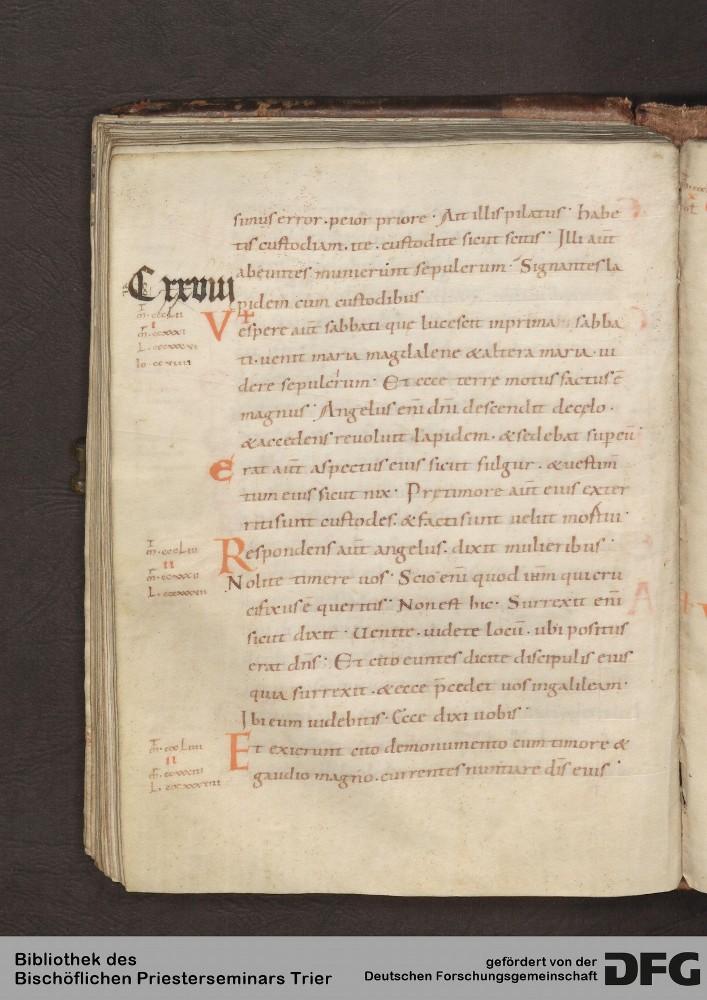 simus error. peior priore. Ait illis pilatus. habe
tis custodiam. ite. custodite sicut scitis. Illi aut̄
abeuntes munierunt sepulcrum. Signantes la
Cxxviii
pidem cum custodibus
m̄. cccLii
m̄. ccxxxi
L. cccxxxvi
Io. ccviiii
Vespere aut̄ sabbati que lucescit inprima sabba
ti. uenit maria magdalene & altera maria. ui
dere sepulcrum. Et ecce terre motus factus ē
magnus. Angelus eni̅ dn̄i descendit de cęlo.
& accedens reuoluit lapidem. & sedebat sup eū
erat aut̄ aspectus eius sicut fulgur. & uestim̄
tum eius sicut nix. Pre timore aut̄ eius exter
riti sunt custodes. & facti sunt uelut mortui.
m̄. cccLiii
ii
m̄. ccxxxii
Respondens aut̄ angelus. dixit mulieribus.
Nolite timere uos. Scio eni̅ quod ih̄m qui cru
cifixus ē queritis. Non est hic. Surrexit eni̅
sicut dixit. Uenite. uidete locū. ubi positus
erat dn̄s. Et cito euntes dicite discipulis eius
quia surrexit. & ecce p̄cedet uos in galileam.
Ibi eum uidebitis. Ecce dixi uobis.
m̄. cccLiiii
ii
m̄. ccxxxiii
L. cccxxxviii
Et exierunt cito de monumento cum timore &
gaudio magno. currentes nuntiare dis̄ eius.
Bibliothek des
Bischöflichen Priesterseminars Trier
gefördert von der
Deutschen Forschungsgemeinschaft
DFG